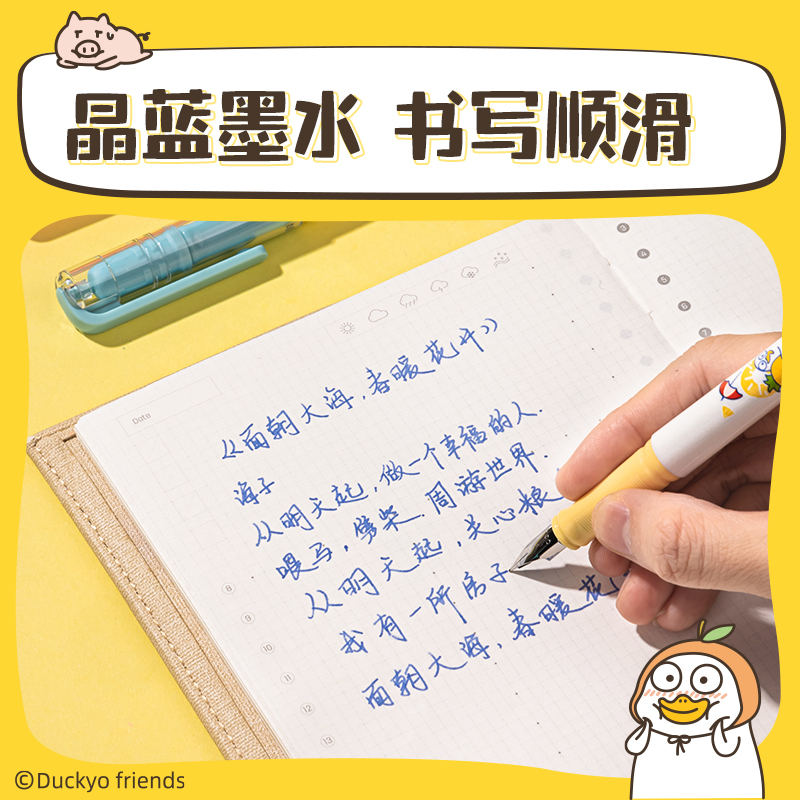 晶蓝墨水 书写顺滑
Date
《面朝大海，春暖花开》
海子
从明天起，做一个幸福的人.
喂马，劈柴，周游世界.
从明天起，关心粮
我有一所房子
面朝大海，春暖花
3
4
5
6
7
8
9
10
11
12
13
©Duckyo friends